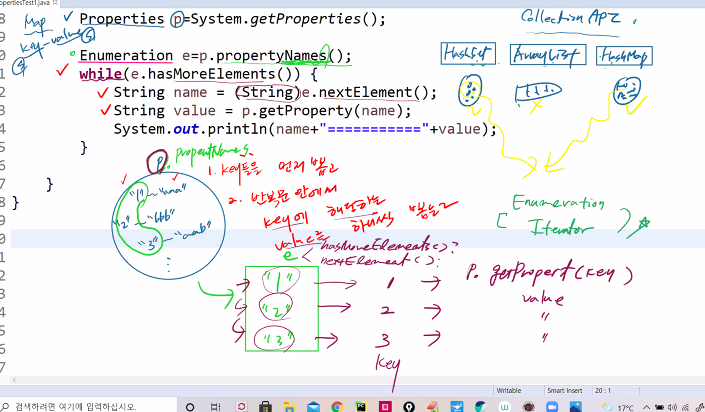 opertiesTest1.java
Map
key-value
Properties p=System.getProperties();
Enumeration e=p.propertyNames();
while(e.hasMoreElements()) {
String name = (String)e.nextElement();
String value = p.getProperty(name);
System.out.println(name+"==========="+value);
}
}
}
Collection API
HashSet ArrayList HashMap
p. propertNames
"1" - "aaa"
"2" - "bbb"
"3" - "aab"
1. key들을 먼저 뽑고
2. 반복문 안에서
key에 해당하는
value를 하나씩 뽑는다
Enumeration
Iterator
e
hasMoreElements()?
nextElement();
"1" → 1 →
"2" → 2 →
"3" → 3 →
key
p. getPropert(key)
value
"
"
Writable Smart Insert 20 : 1
검색하려면 여기에 입력하십시오.
17°C